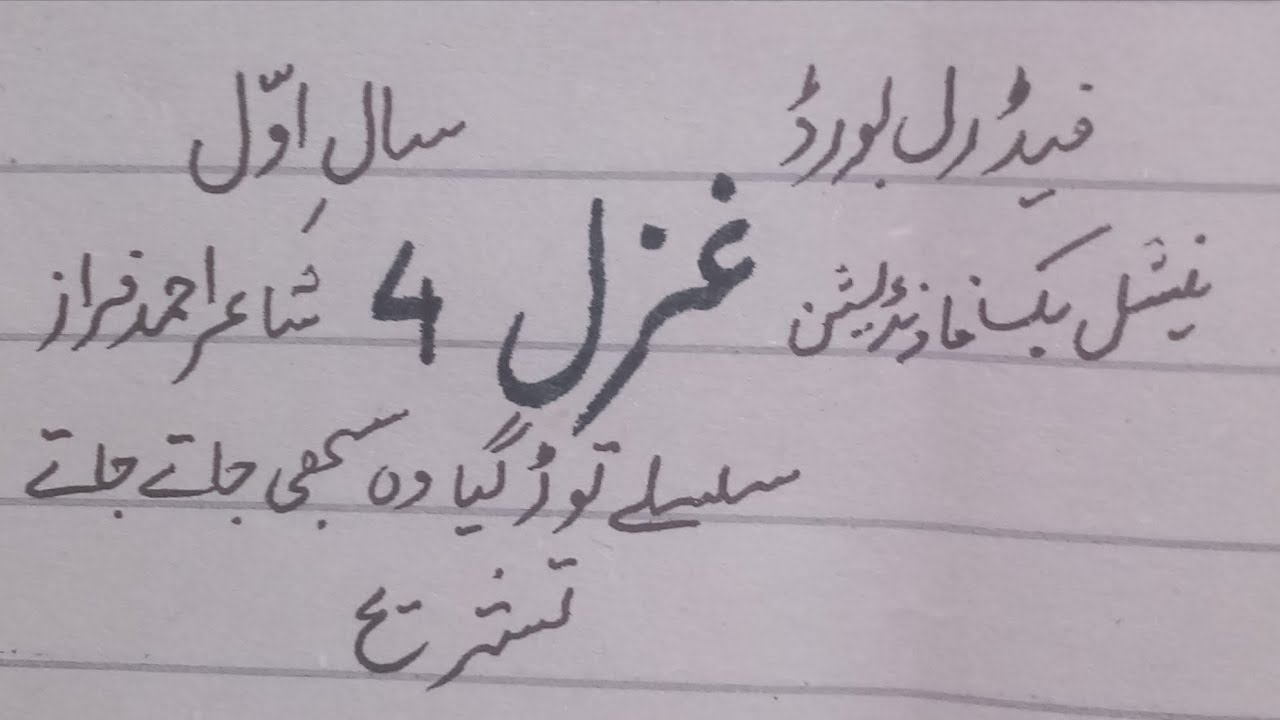 فیڈرل بورڈ سالِ اوّل
نیشنل بک فاؤنڈیشن غزل 4 شاعر احمد فراز
سلسلے توڑ گیا وہ سبھی جاتے جاتے
تشریح